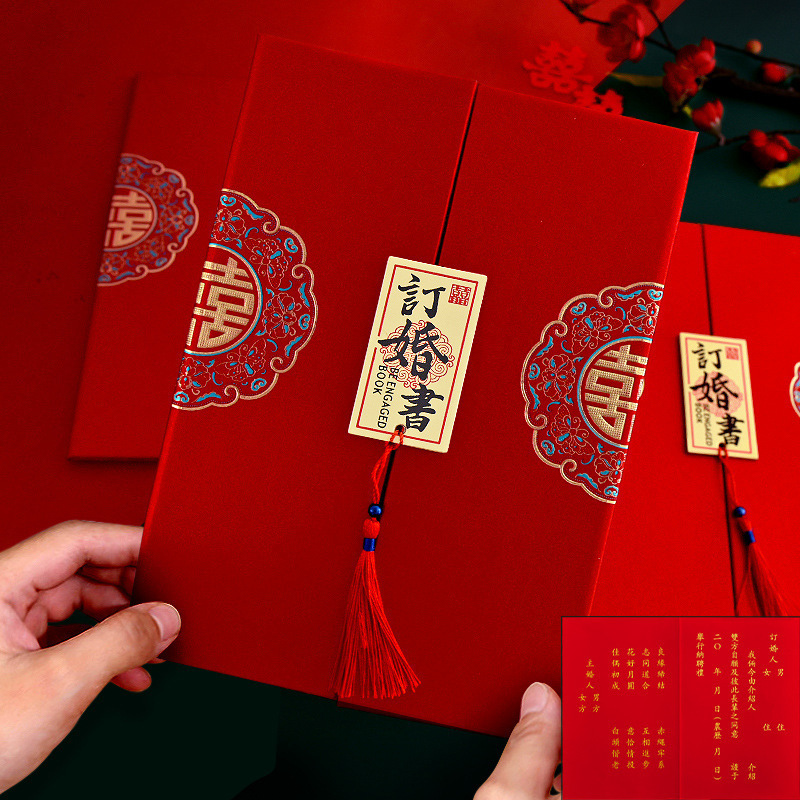 囍
囍
囍
囍
訂婚書
BE ENGAGED
BOOK
訂婚書
BE ENGAGED
BOOK
訂婚人 男 住
女 住
我倆今由介紹人 介紹
雙方自願及彼此長輩之同意 謹于
二〇 年 月 日(農歷 月 日)
舉行納聘禮
良緣締結 赤繩牢系
志同道合 互相進步
花好月圓 意恰情投
佳偶初成 白頭偕老
主婚人 男方
女方